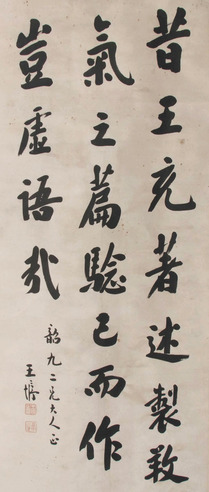 昔王充著述製養
氣之篇驗已而作
豈虛語哉
韶九二兄大人正
王